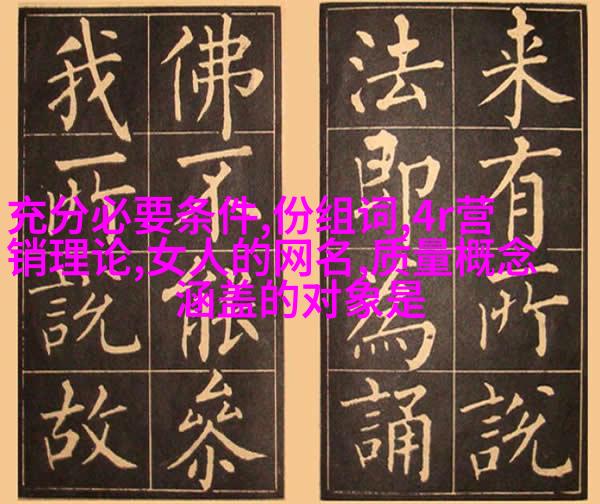 来有所說
法即為誦
佛不能參
我所說故
充分必要条件,份组词,4r营
销理论,女人的网名,质量概念
涵盖的对象是